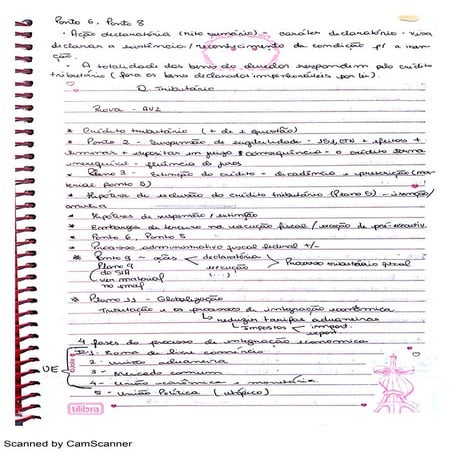 Ponto 6, Ponto 8
• Ação declaratória (rito sumário) - caráter declaratório - visa
declarar a existência / reconhecimento da condição p/ a
• A totalidade dos bens do devedor respondem pelo crédito
tributário (fora os bens declarados impenhoráveis por lei).
D. Tributário
Prova - AV2
* Crédito tributário (+ de 1 questão)
* Ponto 2 - Suspensão da exigibilidade - 151, CTN + efeitos +
liminar + depósitos em juízo consequência - o crédito
inexequível - fluência de juros
* Plano 3 - Extinção do crédito - decadência e prescrição
Ponto 5)
* Hipótese de exclusão do crédito tributário (Plano 5) - isenção/
anistia
* Hipóteses de suspensão / extinção
* Embargos de terceiro na execução fiscal / exceção de pré-executiv.
* Ponto 6, Ponto 5
* Processo administrativo fiscal federal +/-
* Ponto 9 - ações declaratória
Plano 9 execução Processo tributário fiscal
do SIA (...)
(ver material
no email
* Plano 11 - Globalização
Tributação e os processos de integração econômica
reduzir tarifas aduaneiras
Impostos import.
export.
4 fases do processo de integração econômica
1 - Zona de livre comércio
2 - União aduaneira
UE 3 - Mercado comum
4 - União econômica e monetária
5 - União Política (utópico)
tilibra
Scanned by CamScanner